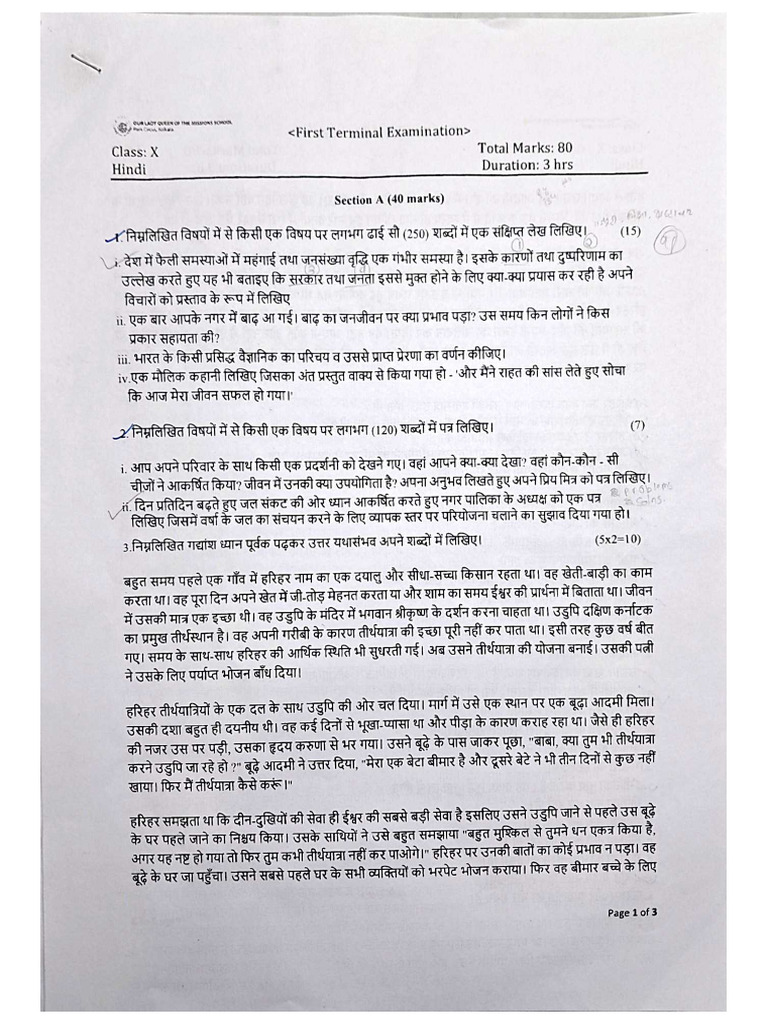 OUR LADY QUEEN OF THE MISSIONS SCHOOL
Park Circus, Kolkata
<First Terminal Examination>
Class: X Total Marks: 80
Hindi Duration: 3 hrs
Section A (40 marks)
1. निम्नलिखित विषयों में से किसी एक विषय पर लगभग ढाई सौ (250) शब्दों में एक संक्षिप्त लेख लिखिए। (15)
i. देश में फैली समस्याओं में महंगाई तथा जनसंख्या वृद्धि एक गंभीर समस्या है। इसके कारणों तथा दुष्परिणाम का
उल्लेख करते हुए यह भी बताइए कि सरकार तथा जनता इससे मुक्त होने के लिए क्या-क्या प्रयास कर रही है अपने
विचारों को प्रस्ताव के रूप में लिखिए
ii. एक बार आपके नगर में बाढ़ आ गई। बाढ़ का जनजीवन पर क्या प्रभाव पड़ा? उस समय किन लोगों ने किस
प्रकार सहायता की?
iii. भारत के किसी प्रसिद्ध वैज्ञानिक का परिचय व उससे प्राप्त प्रेरणा का वर्णन कीजिए।
iv.एक मौलिक कहानी लिखिए जिसका अंत प्रस्तुत वाक्य से किया गया हो - 'और मैंने राहत की सांस लेते हुए सोचा
कि आज मेरा जीवन सफल हो गया।'
2. निम्नलिखित विषयों में से किसी एक विषय पर लगभग (120) शब्दों में पत्र लिखिए। (7)
i. आप अपने परिवार के साथ किसी एक प्रदर्शनी को देखने गए। वहां आपने क्या-क्या देखा? वहां कौन-कौन - सी
चीज़ों ने आकर्षित किया? जीवन में उनकी क्या उपयोगिता है? अपना अनुभव लिखते हुए अपने प्रिय मित्र को पत्र लिखिए।
ii. दिन प्रतिदिन बढ़ते हुए जल संकट की ओर ध्यान आकर्षित करते हुए नगर पालिका के अध्यक्ष को एक पत्र
लिखिए जिसमें वर्षा के जल का संचयन करने के लिए व्यापक स्तर पर परियोजना चलाने का सुझाव दिया गया हो।
3.निम्नलिखित गद्यांश ध्यान पूर्वक पढ़कर उत्तर यथासंभव अपने शब्दों में लिखिए। (5x2=10)
बहुत समय पहले एक गाँव में हरिहर नाम का एक दयालु और सीधा-सच्चा किसान रहता था। वह खेती-बाड़ी का काम
करता था। वह पूरा दिन अपने खेत में जी-तोड़ मेहनत करता या और शाम का समय ईश्वर की प्रार्थना में बिताता था। जीवन
में उसकी मात्र एक इच्छा थी। वह उडुपि के मंदिर में भगवान श्रीकृष्ण के दर्शन करना चाहता था। उडुपि दक्षिण कर्नाटक
का प्रमुख तीर्थस्थान है। वह अपनी गरीबी के कारण तीर्थयात्रा की इच्छा पूरी नहीं कर पाता था। इसी तरह कुछ वर्ष बीत
गए। समय के साथ-साथ हरिहर की आर्थिक स्थिति भी सुधरती गई। अब उसने तीर्थयात्रा की योजना बनाई। उसकी पत्नी
ने उसके लिए पर्याप्त भोजन बाँध दिया।
हरिहर तीर्थयात्रियों के एक दल के साथ उडुपि की ओर चल दिया। मार्ग में उसे एक स्थान पर एक बूढ़ा आदमी मिला।
उसकी दशा बहुत ही दयनीय थी। वह कई दिनों से भूखा-प्यासा था और पीड़ा के कारण कराह रहा था। जैसे ही हरिहर
की नजर उस पर पड़ी, उसका हृदय करुणा से भर गया। उसने बूढ़े के पास जाकर पूछा, "बाबा, क्या तुम भी तीर्थयात्रा
करने उडुपि जा रहे हो ?" बूढ़े आदमी ने उत्तर दिया, "मेरा एक बेटा बीमार है और दूसरे बेटे ने भी तीन दिनों से कुछ नहीं
खाया। फिर मैं तीर्थयात्रा कैसे करूं।"
हरिहर समझता था कि दीन-दुखियों की सेवा ही ईश्वर की सबसे बड़ी सेवा है इसलिए उसने उडुपि जाने से पहले उस बूढ़े
के घर पहले जाने का निश्चय किया। उसके साथियों ने उसे बहुत समझाया "बहुत मुश्किल से तुमने धन एकत्र किया है,
अगर यह नष्ट हो गया तो फिर तुम कभी तीर्थयात्रा नहीं कर पाओगे।" हरिहर पर उनकी बातों का कोई प्रभाव न पड़ा। वह
बूढ़े के घर जा पहुँचा। उसने सबसे पहले घर के सभी व्यक्तियों को भरपेट भोजन कराया। फिर वह बीमार बच्चे के लिए
Page 1 of 3